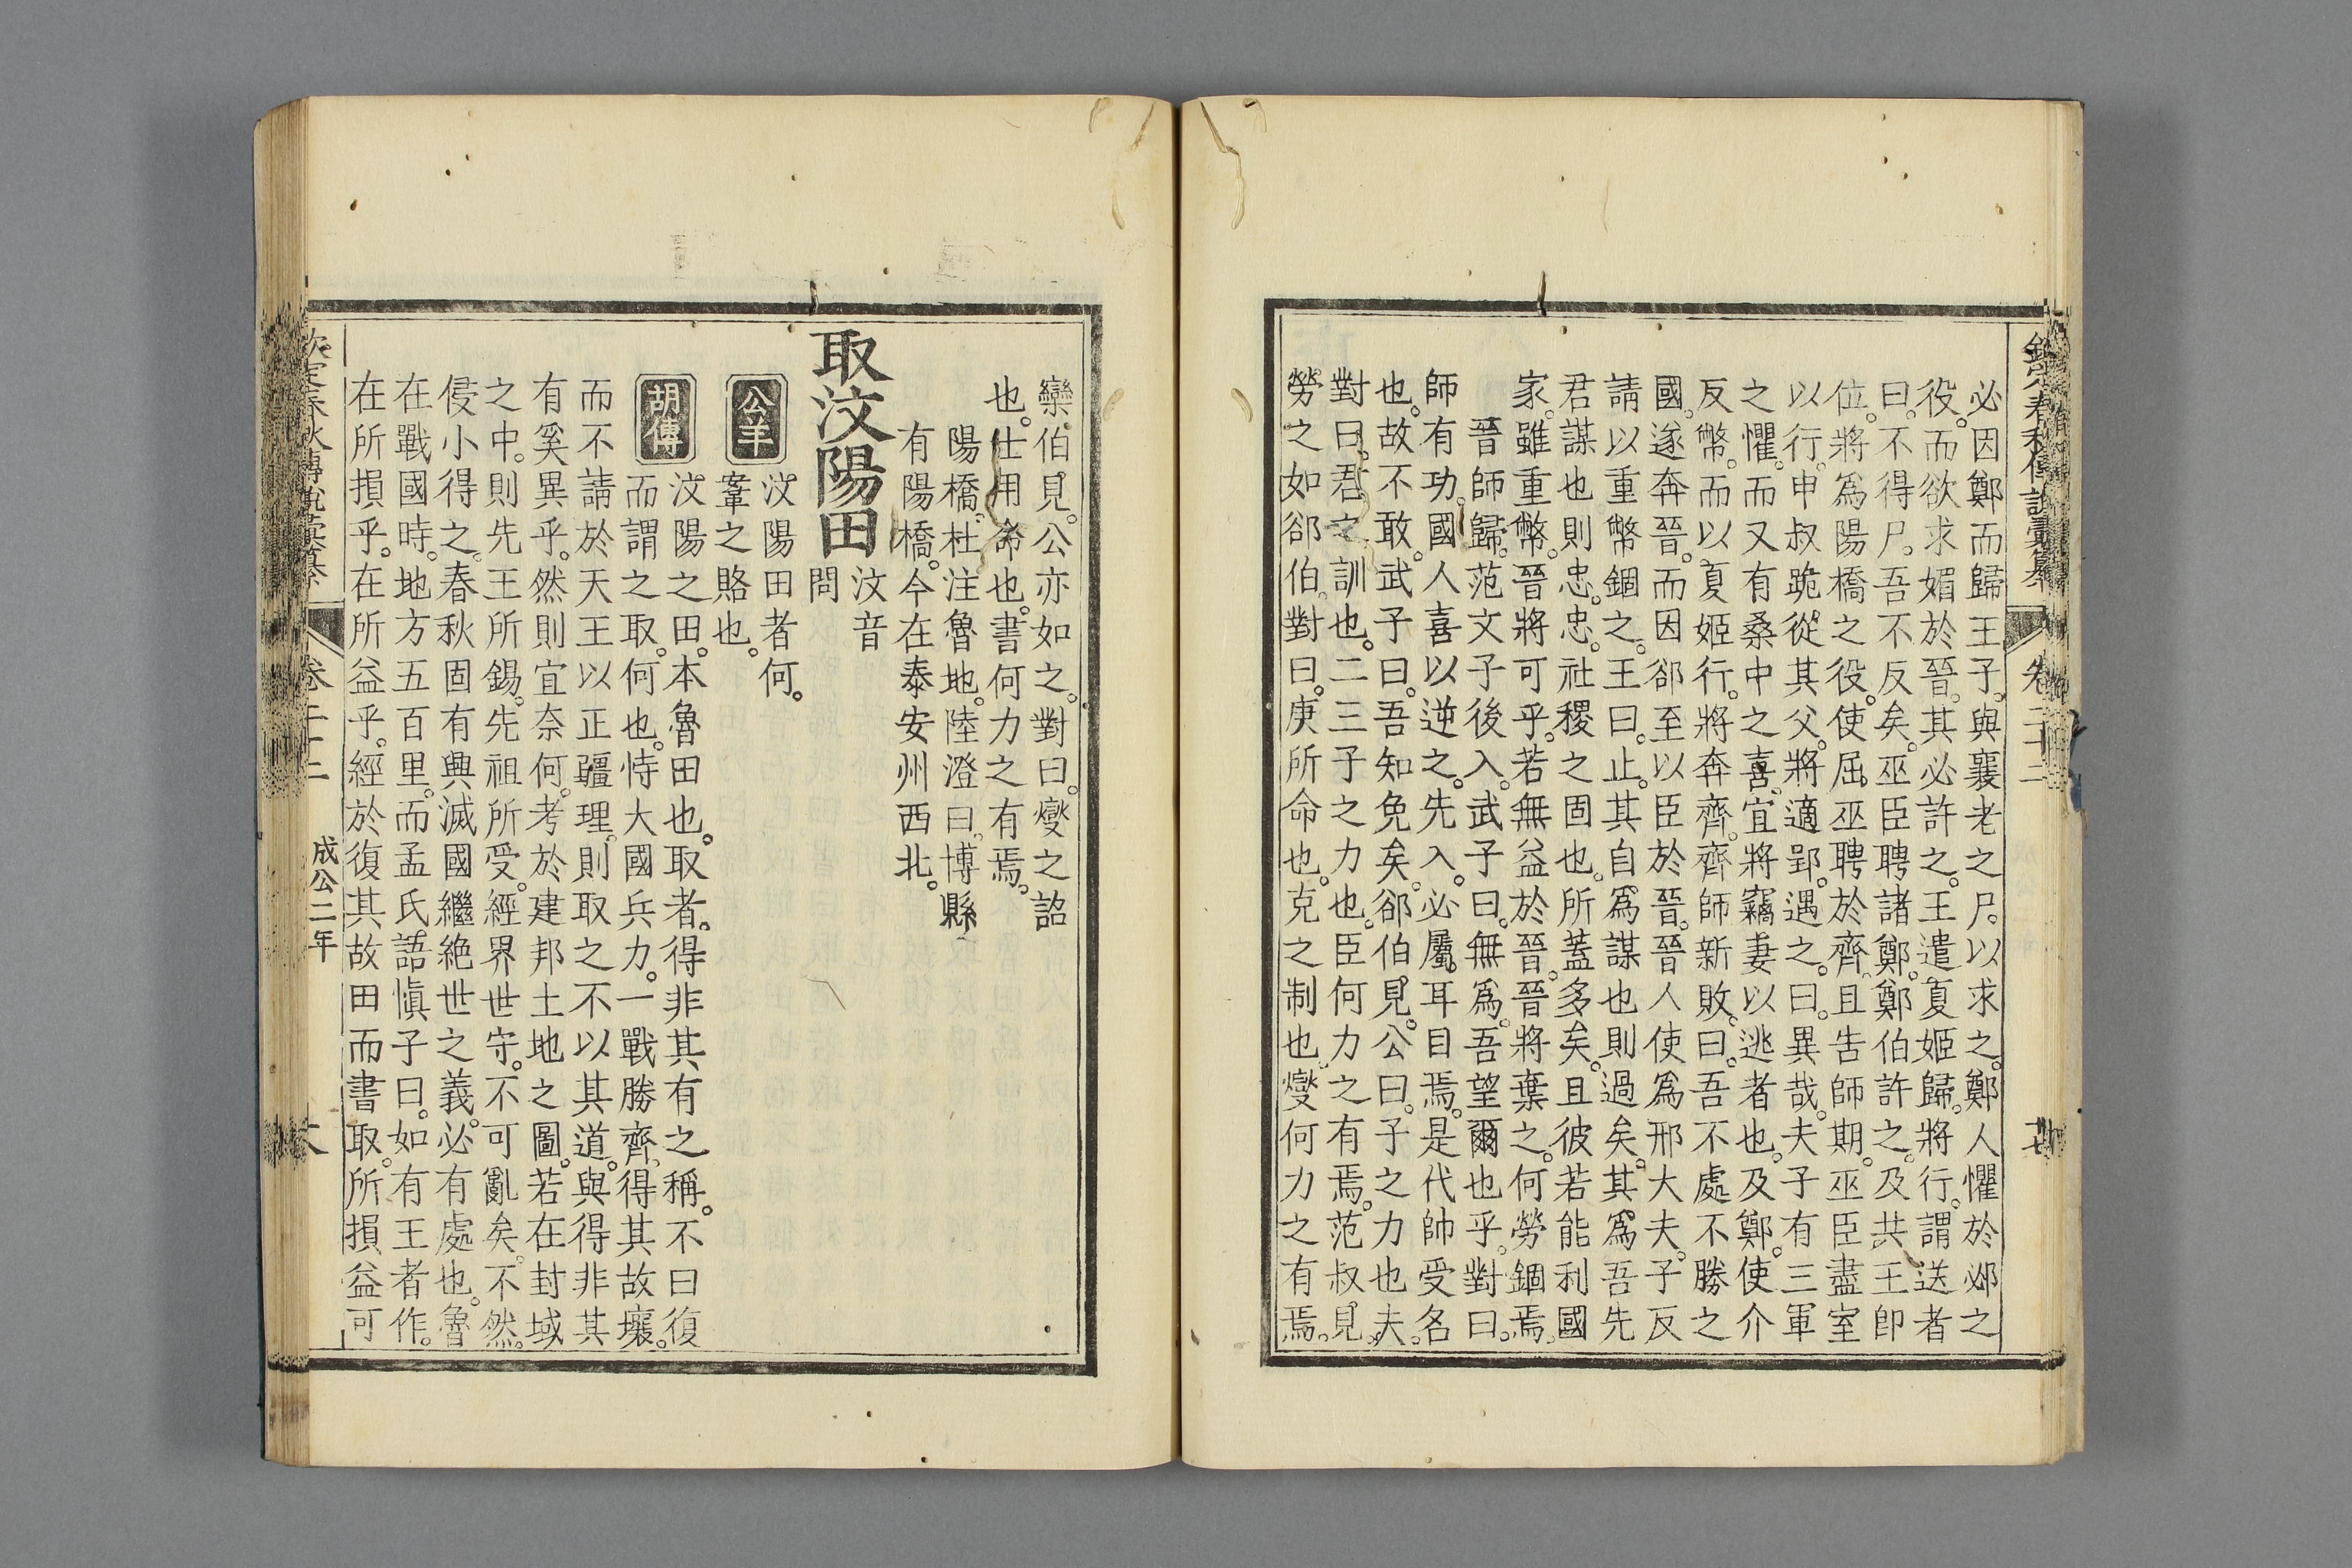 必因鄭而歸王子。與襄老之尸。以求之。鄭人懼於邲之
役。而欲求媚於晉。其必許之。王遣夏姬歸。將行。謂送者
曰。不得尸。吾不反矣。巫臣聘諸鄭。鄭伯許之。及共王卽
位。將爲陽橋之役。使屈巫聘於齊。且吿師期。巫臣盡室
以行。申叔跪從其父。將適郢。遇之。曰。異哉。夫子有三軍
之懼。而又有桑中之喜。宜將竊妻以逃者也。及鄭。使介
反幣。而以夏姬行。將奔齊。齊師新敗。曰。吾不處不勝之
國。遂奔晉。而因郤至以臣於晉。晉人使爲邢大夫。子反
請以重幣錮之。王曰。止。其自爲謀也則過矣。其爲吾先
君謀也。則忠。忠。社稷之固也。所蓋多矣。且彼若能利國
家。雖重幣。晉將可乎。若無益於晉。晉將棄之。何勞錮焉。
晉師歸。范文子後入。武子曰。無爲吾望爾也乎。對曰。
師有功。國人喜以逆之。先入。必屬耳目焉。是代帥受名
也。故不敢。武子曰。吾知免矣。郤伯見。公曰。子之力也夫。
對曰。君之訓也。二三子之力也。臣何力之有焉。范叔見。
勞之如郤伯。對曰。庚所命也。克之制也。燮何力之有焉。
欒伯見。公亦如之。對曰。燮之詔
也。士用命也。書何力之有焉。
陽橋。杜注魯地。陸澄曰。博縣
有陽橋。今在泰安州西北。
取汶陽田
汶音
問
公羊
汶陽田者何。
鞌之賂也。
胡傳
汶陽之田。本魯田也。取者。得非其有之稱。不曰復
而謂之取。何也。恃大國兵力。一戰勝齊。得其故壤。
而不請於天王以正疆理。則取之不以其道。與得非其
有奚異乎。然則宜奈何。考於建邦土地之圖。若在封域
之中。則先王所錫。先祖所受。經界世守。不可亂矣。不然。
侵小得之。春秋固有興滅國繼絶世之義。必有處也。魯
在戰國時。地方五百里。而孟氏語愼子曰。如有王者作。
在所損乎。在所益乎。經於復其故田而書取。所損益可
成公二年